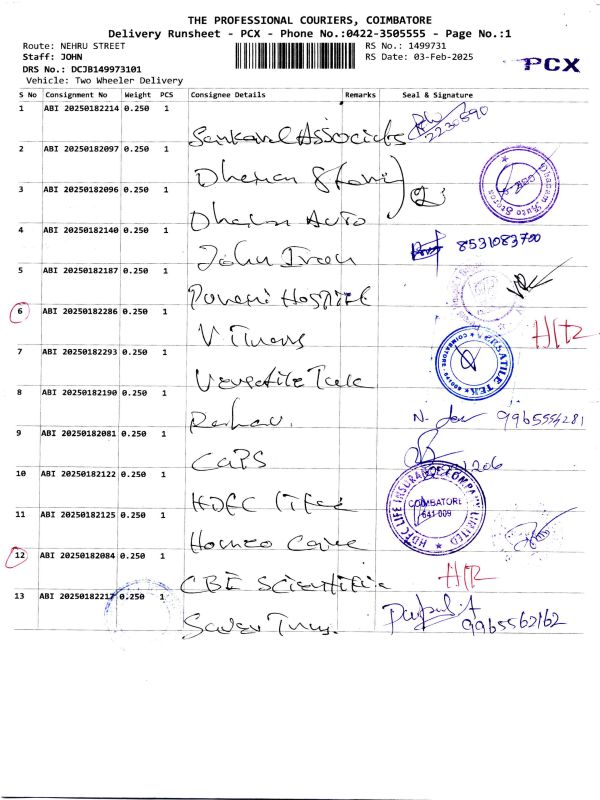 THE PROFESSIONAL COURIERS, COIMBATORE
Delivery Runsheet - PCX - Phone No.:0422-3505555 - Page No.:1
Route: NEHRU STREET
RS No.: 1499731
Staff: JOHN
RS Date: 03-Feb-2025
PCX
DRS No.: DCJB149973101
Vehicle: Two Wheeler Delivery
S No Consignment No Weight PCS Consignee Details Remarks Seal & Signature
1 ABI 20250182214 0.250 1 Associates 2230590
2 ABI 20250182097 0.250 1
Dhanam Auto Stores
3 ABI 20250182096 0.250 1 Auto
4 ABI 20250182140 0.250 1 John 8531083700
5 ABI 20250182187 0.250 1
6 ABI 20250182286 0.250 1 H/R
7 ABI 20250182293 0.250 1 Versatile Tek
VERSATILE TEK COIMBATORE
8 ABI 20250182190 0.250 1 9965554281
9 ABI 20250182081 0.250 1 CAPS 1206
10 ABI 20250182122 0.250 1 HDFC Life
HDFC LIFE INSURANCE COMPANY LIMITED
COIMBATORE
641 009
11 ABI 20250182125 0.250 1 Homeo Care
12 ABI 20250182084 0.250 1 CBE Scientific H/R
13 ABI 20250182217 0.250 1 9965562162